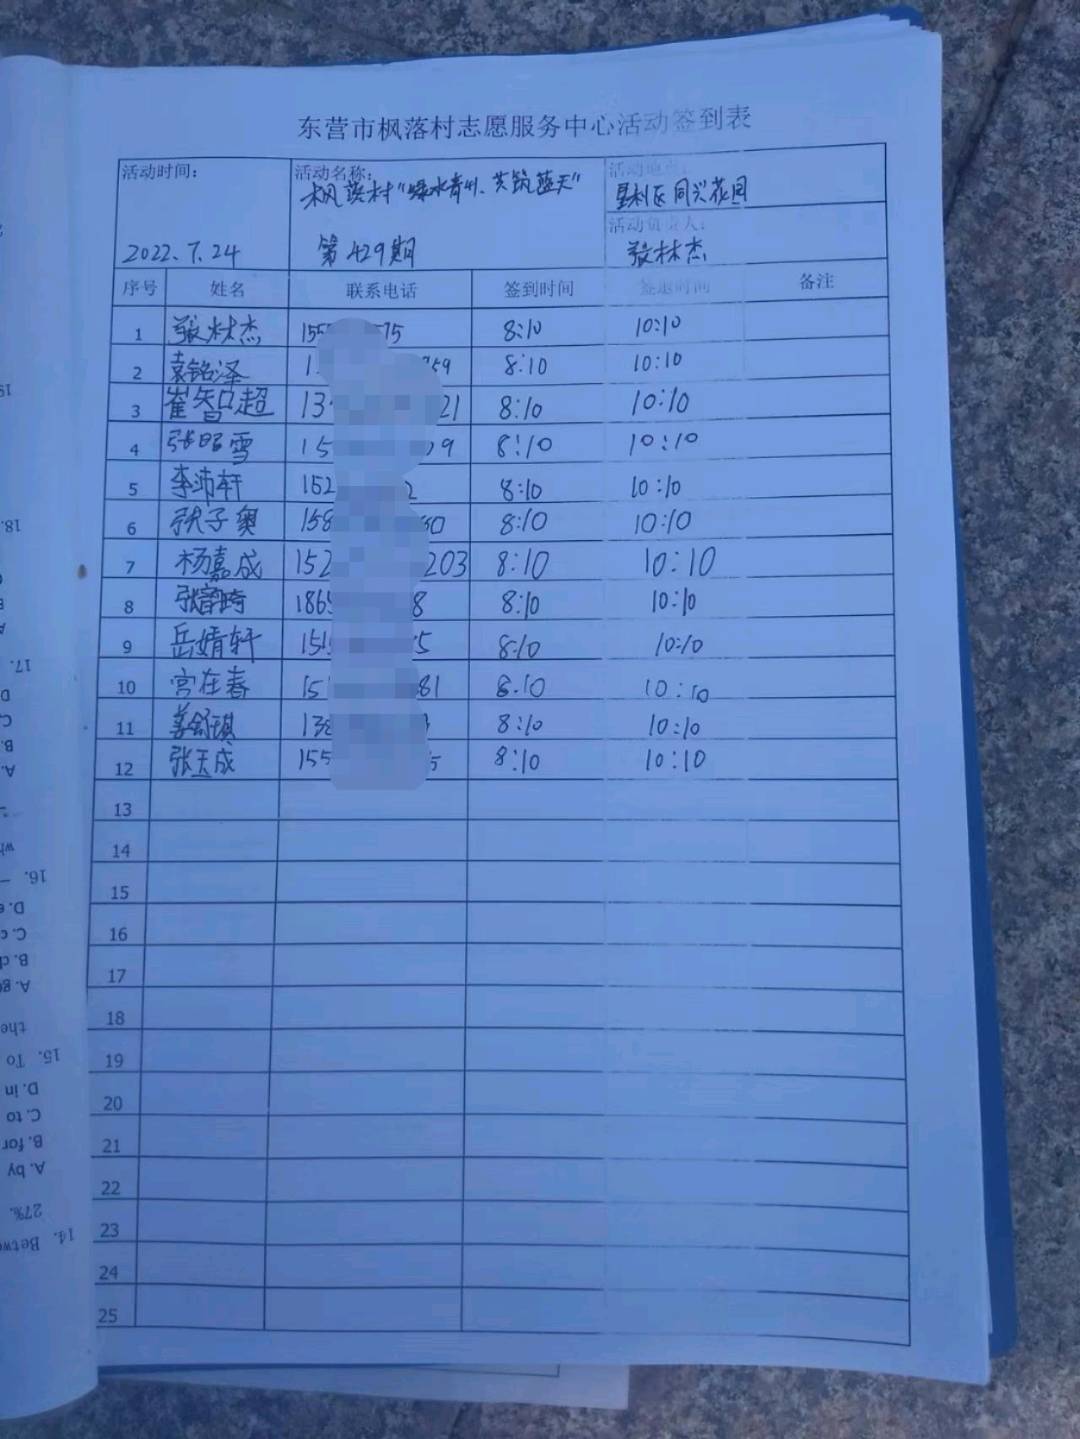 东营市枫落村志愿服务中心活动签到表
活动时间: 2022.7.24
活动名称: 枫落村"绿水青山、共筑蓝天" 第429期
活动地点: 垦利区同兴花园
活动负责人: 张林杰
序号 姓名 联系电话 签到时间 签退时间 备注
1 张林杰 155 75 8:10 10:10
2 袁铭泽 1 759 8:10 10:10
3 崔智超 13 21 8:10 10:10
4 张昭雪 15 9 8:10 10:10
5 李沛轩 152 2 8:10 10:10
6 张子奥 158 30 8:10 10:10
7 杨嘉成 152 203 8:10 10:10
8 186 8 8:10 10:10
9 岳婧轩 151 5 8:10 10:10
10 宫在春 15 81 8:10 10:10
11 138 8:10 10:10
12 张天成 155 5 8:10 10:10
13
14
15
16
17
18
19
20
21
22
23
24
25
18.
17.
D
C
B.
A.
wh
16.
D.
C. c
B. cl
A. g
the
15. To
D. in
C. to
B. for
A. by
27%.
14. Betw